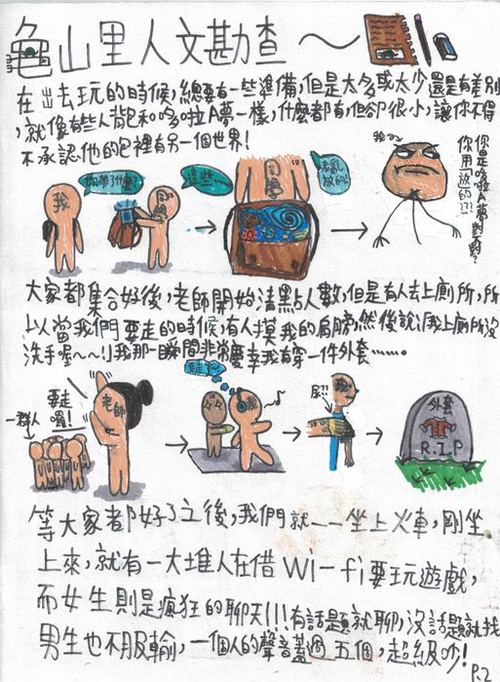 龜山里人文勘查~
在出去玩的時候,總要有一些準備,但是太多或太少還是有差別
,就像有些人背包和哆啦A夢一樣,什麼都有,但卻很小,讓你不得
不承認他的包裡有另一個世界!
我
你帶了什麼?
同學
這些…
同學
我亂放的!
我~
你是哆啦A夢對嗎?
你用「放的」?!
大家都集合好後,老師開始清點人數,但是有人去上廁所,所
以當我們要走的時候,有人摸我的肩膀,然後說:「我上廁所沒
洗手喔~~!」我那一瞬間非常慶幸我有穿一件外套……
一群人
要走囉!
老師
要走~
我
尿?!
我
外套
R.I.P
等大家都好了之後,我們就一一坐上火車,剛坐
上來,就有一大堆人在借Wi-fi要玩遊戲,
而女生則是瘋狂的聊天!!!有話題就聊,沒話題就找
男生也不服輸,一個人的聲音蓋過五個,超級吵!
P.2